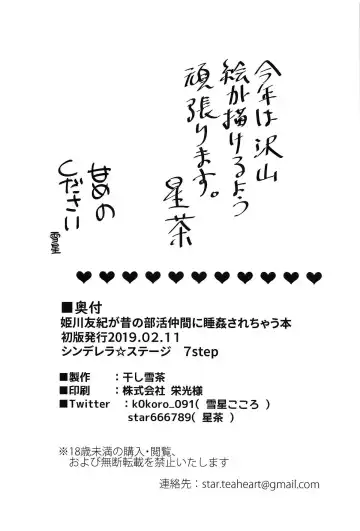 今年は沢山
絵が描けるよう
頑張ります。
星茶
甘めの
ください
雪星
♥♥♥♥♥♥♥♥♥♥♥♥
■奥付
姫川友紀が昔の部活仲間に睡姦されちゃう本
初版発行2019.02.11
シンデレラ☆ステージ 7step
■製作 :干し雪茶
■印刷 :株式会社 栄光様
■Twitter :k0koro_091( 雪星こころ )
star666789( 星茶 )
※18歳未満の購入・閲覧、
および無断転載を禁止いたします
連絡先:star.teaheart@gmail.com